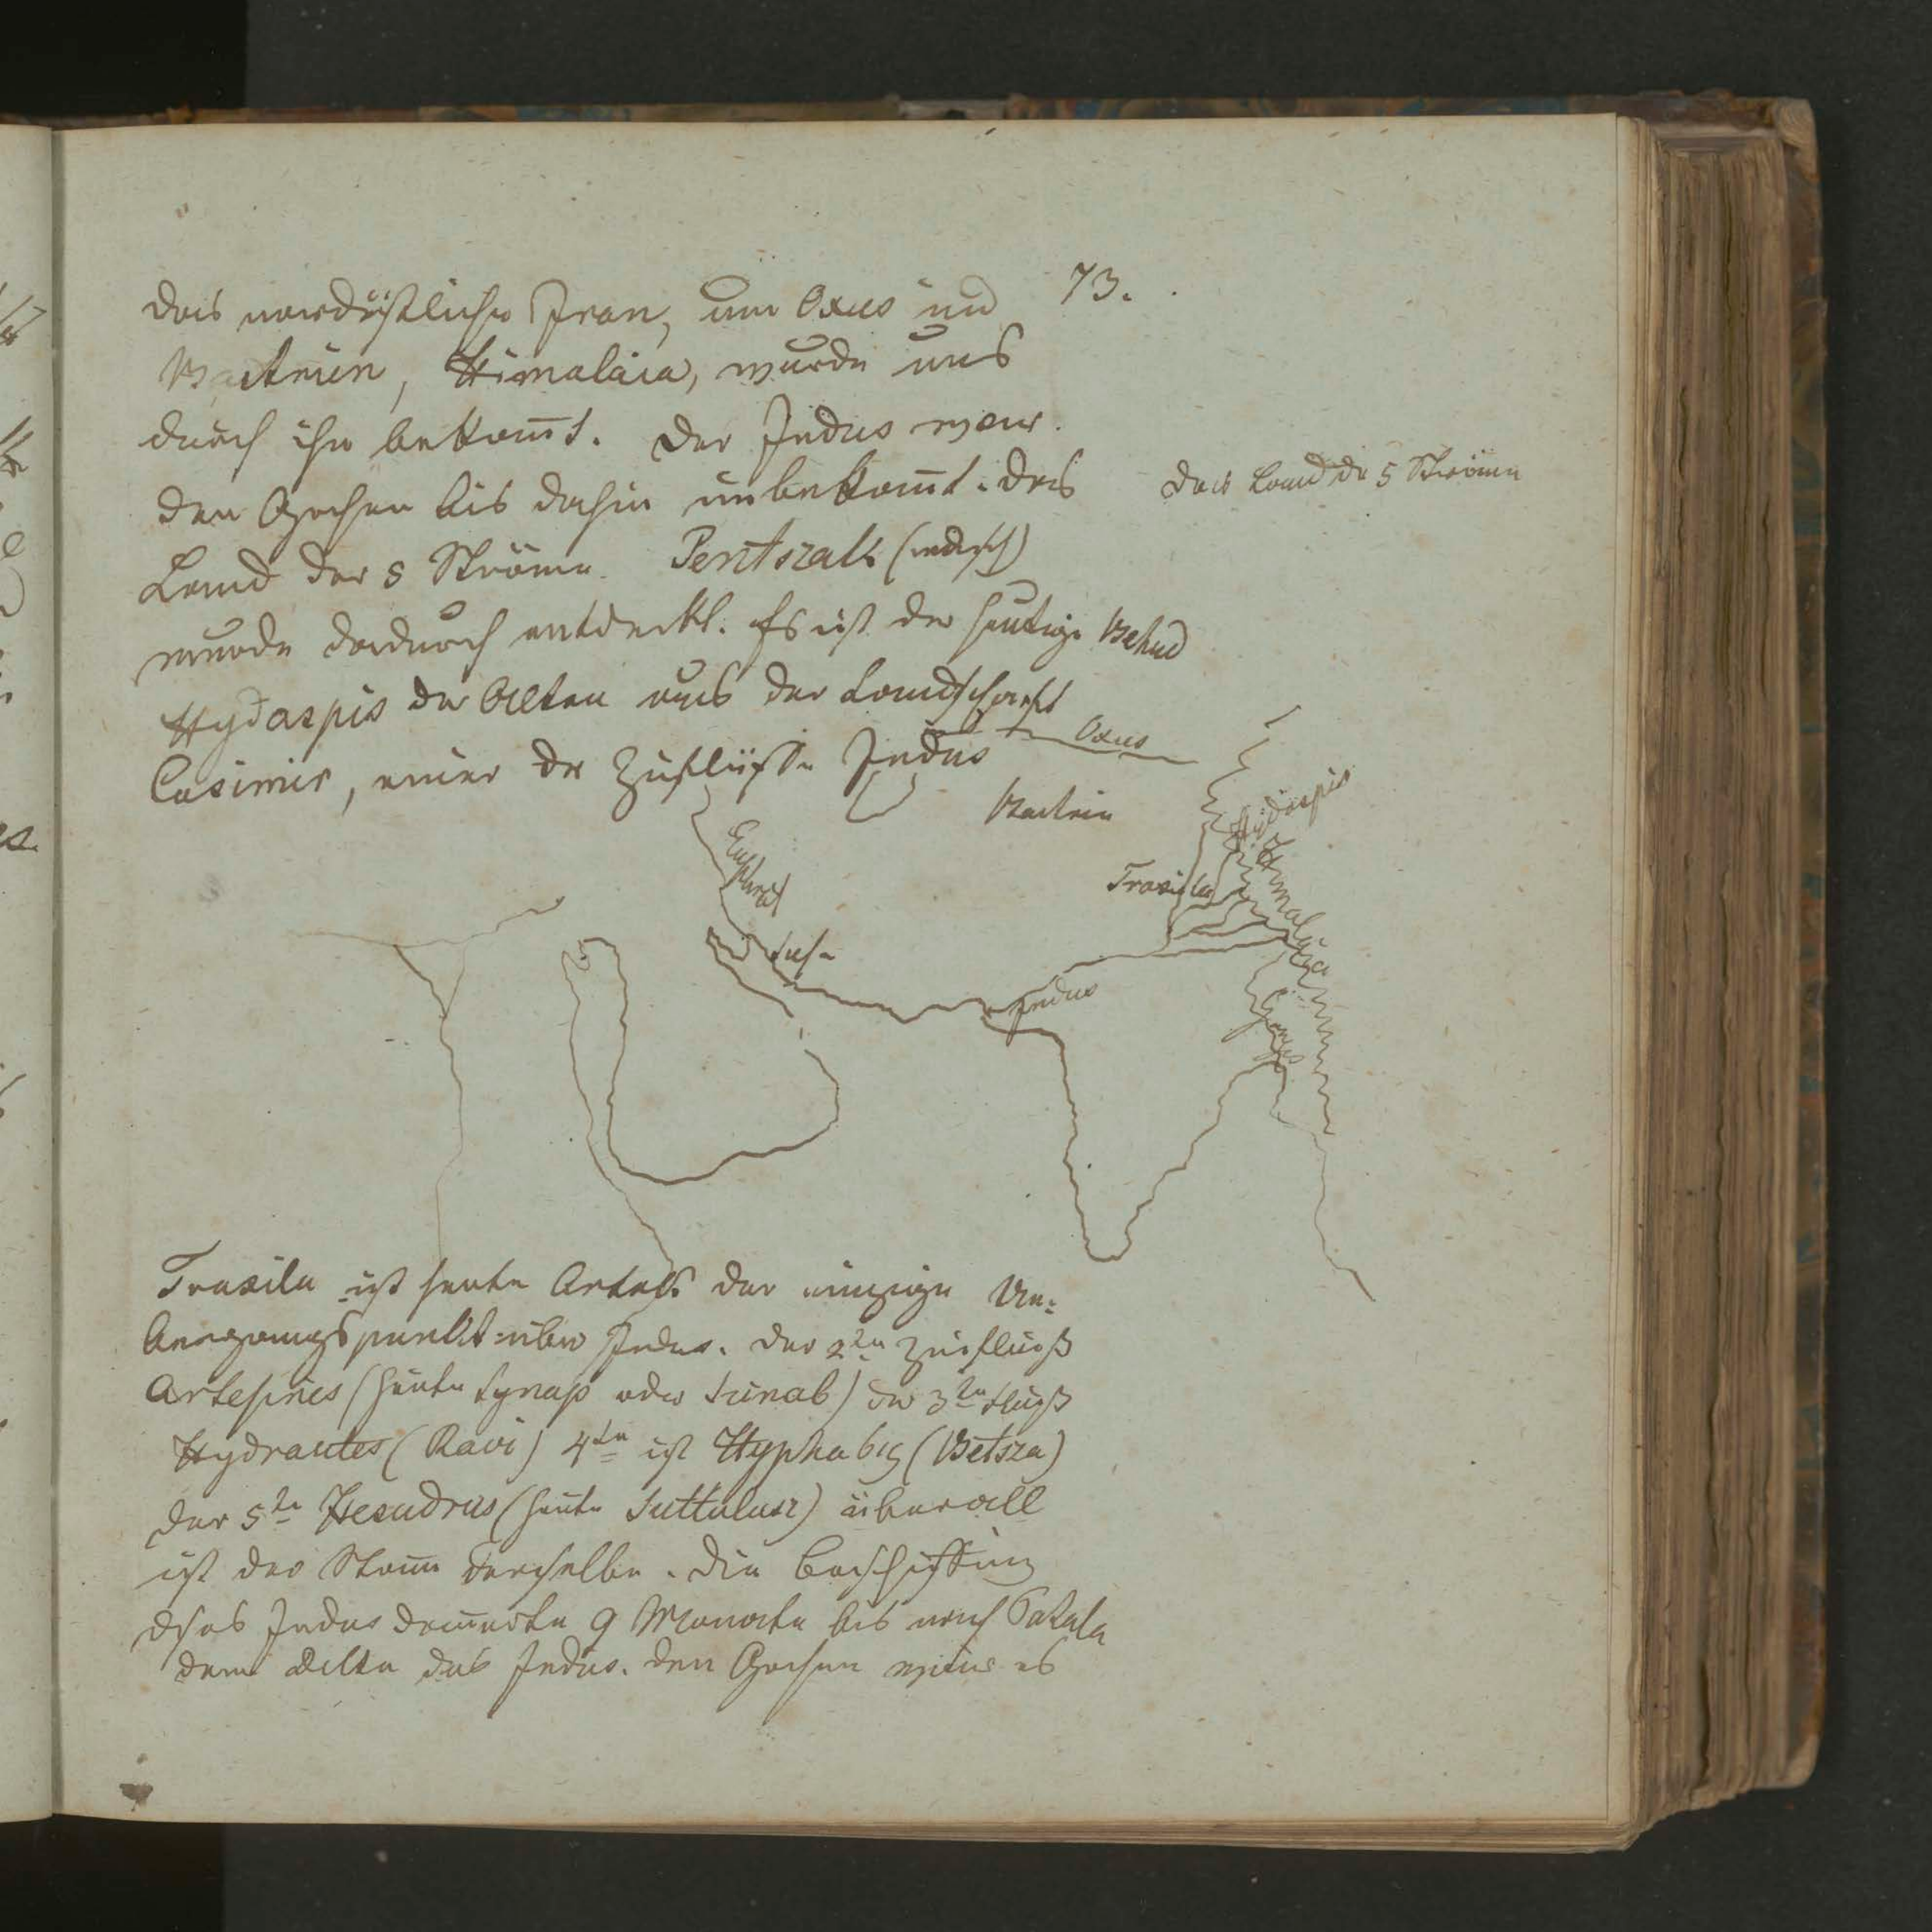 73.
Das nordöstliche Iran, um Oxus und
Bactrien, Himalaia, wurde uns
durch ihn bekannt. Der Indus war
den Griechen bis dahin unbekannt. Das
Das Land der 5 Ströme
Land der 5 Ströme. Pentszab (indisch)
wurde dadurch entdeckt. Es ist der heutige Behud
Hydaspis der Alten aus der Landschaft
Casimir, einer der Zuflüsse Indus
Oxus
Bactrien
Hydaspis
Himalaia
Euphrat
Traxila
Susa
Indus
Ganges
Traxila ist heute der einzige Ue=
bergangspunkt über Indus. Der 2te Zufluß
Artesines (heute Synap oder Sunab) der 3te Fluß
Hydrautes (Ravi) 4te ist Hyphabis (Betsza)
der 5te Hesudrus (heute Suttulusz) überall
ist der Stamm derselbe. Die Beschiffung
des Indus dauerte 9 Monate bis nach Patala
dem Delta des Indus. Den Griechen war es